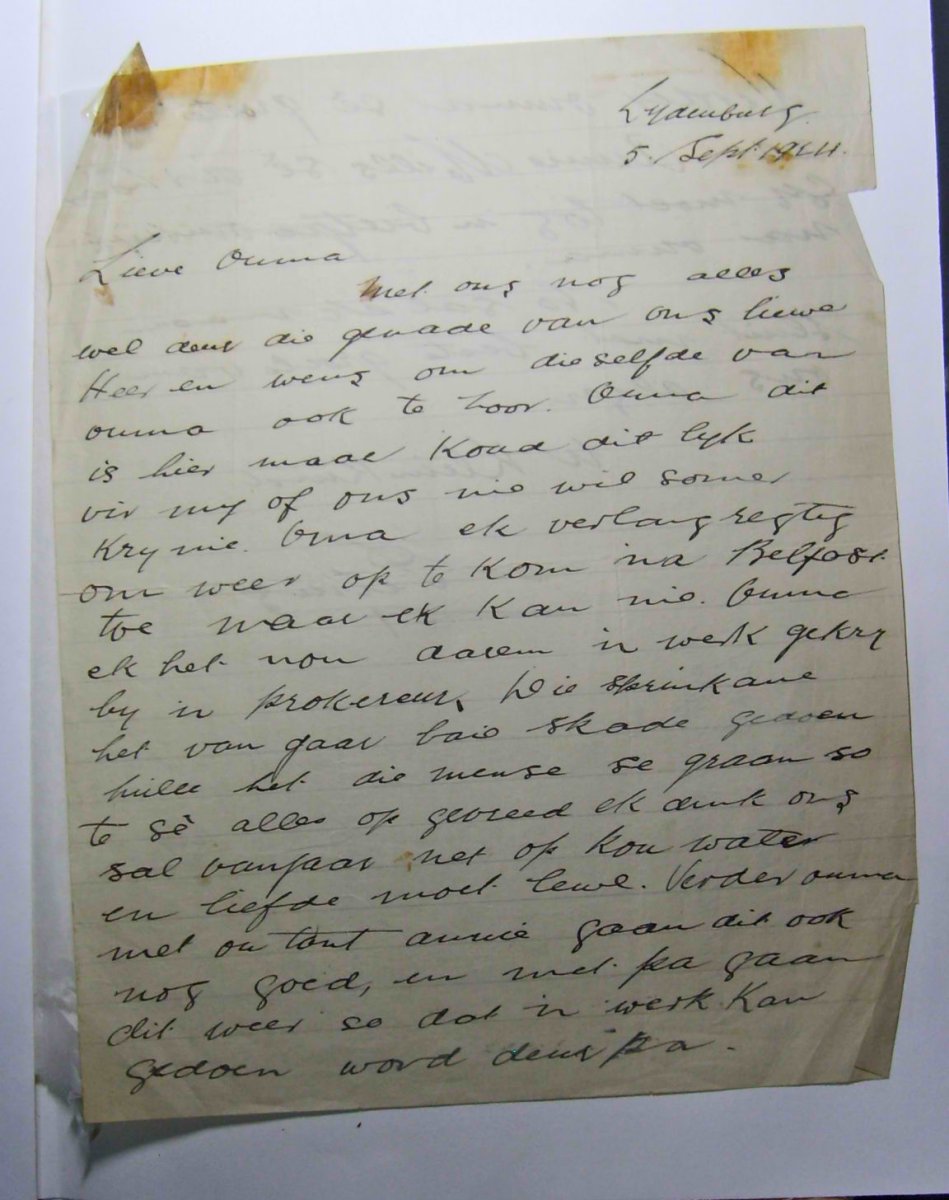 Lydenburg.
5. Sept. 1924.
Lieve Ouma
Met ons nog alles
wel deur die genade van ons liewe
Heer en wens om dieselfde van
ouma ook te hoor. Ouma dit
is hier maar koud dit lyk
vir my of ons nie wil somer
kry nie. Ouma ek verlang regtig
om weer op te kom na Belfast
toe maar ek kan nie. Ouma
ek het nou darem 'n werk gekry
by 'n prokereur. Die sprinkane
het van jaar baie skade gedoen
hulle het die mense se graan so
te sê alles op gevreed ek denk ons
sal vanjaar net op kou water
en liefde moet lewe. Verder ouma
met ou tant annie gaan dit ook
nog goed, en met pa gaan
dit weer so dat 'n werk kan
gedoen word deur pa.